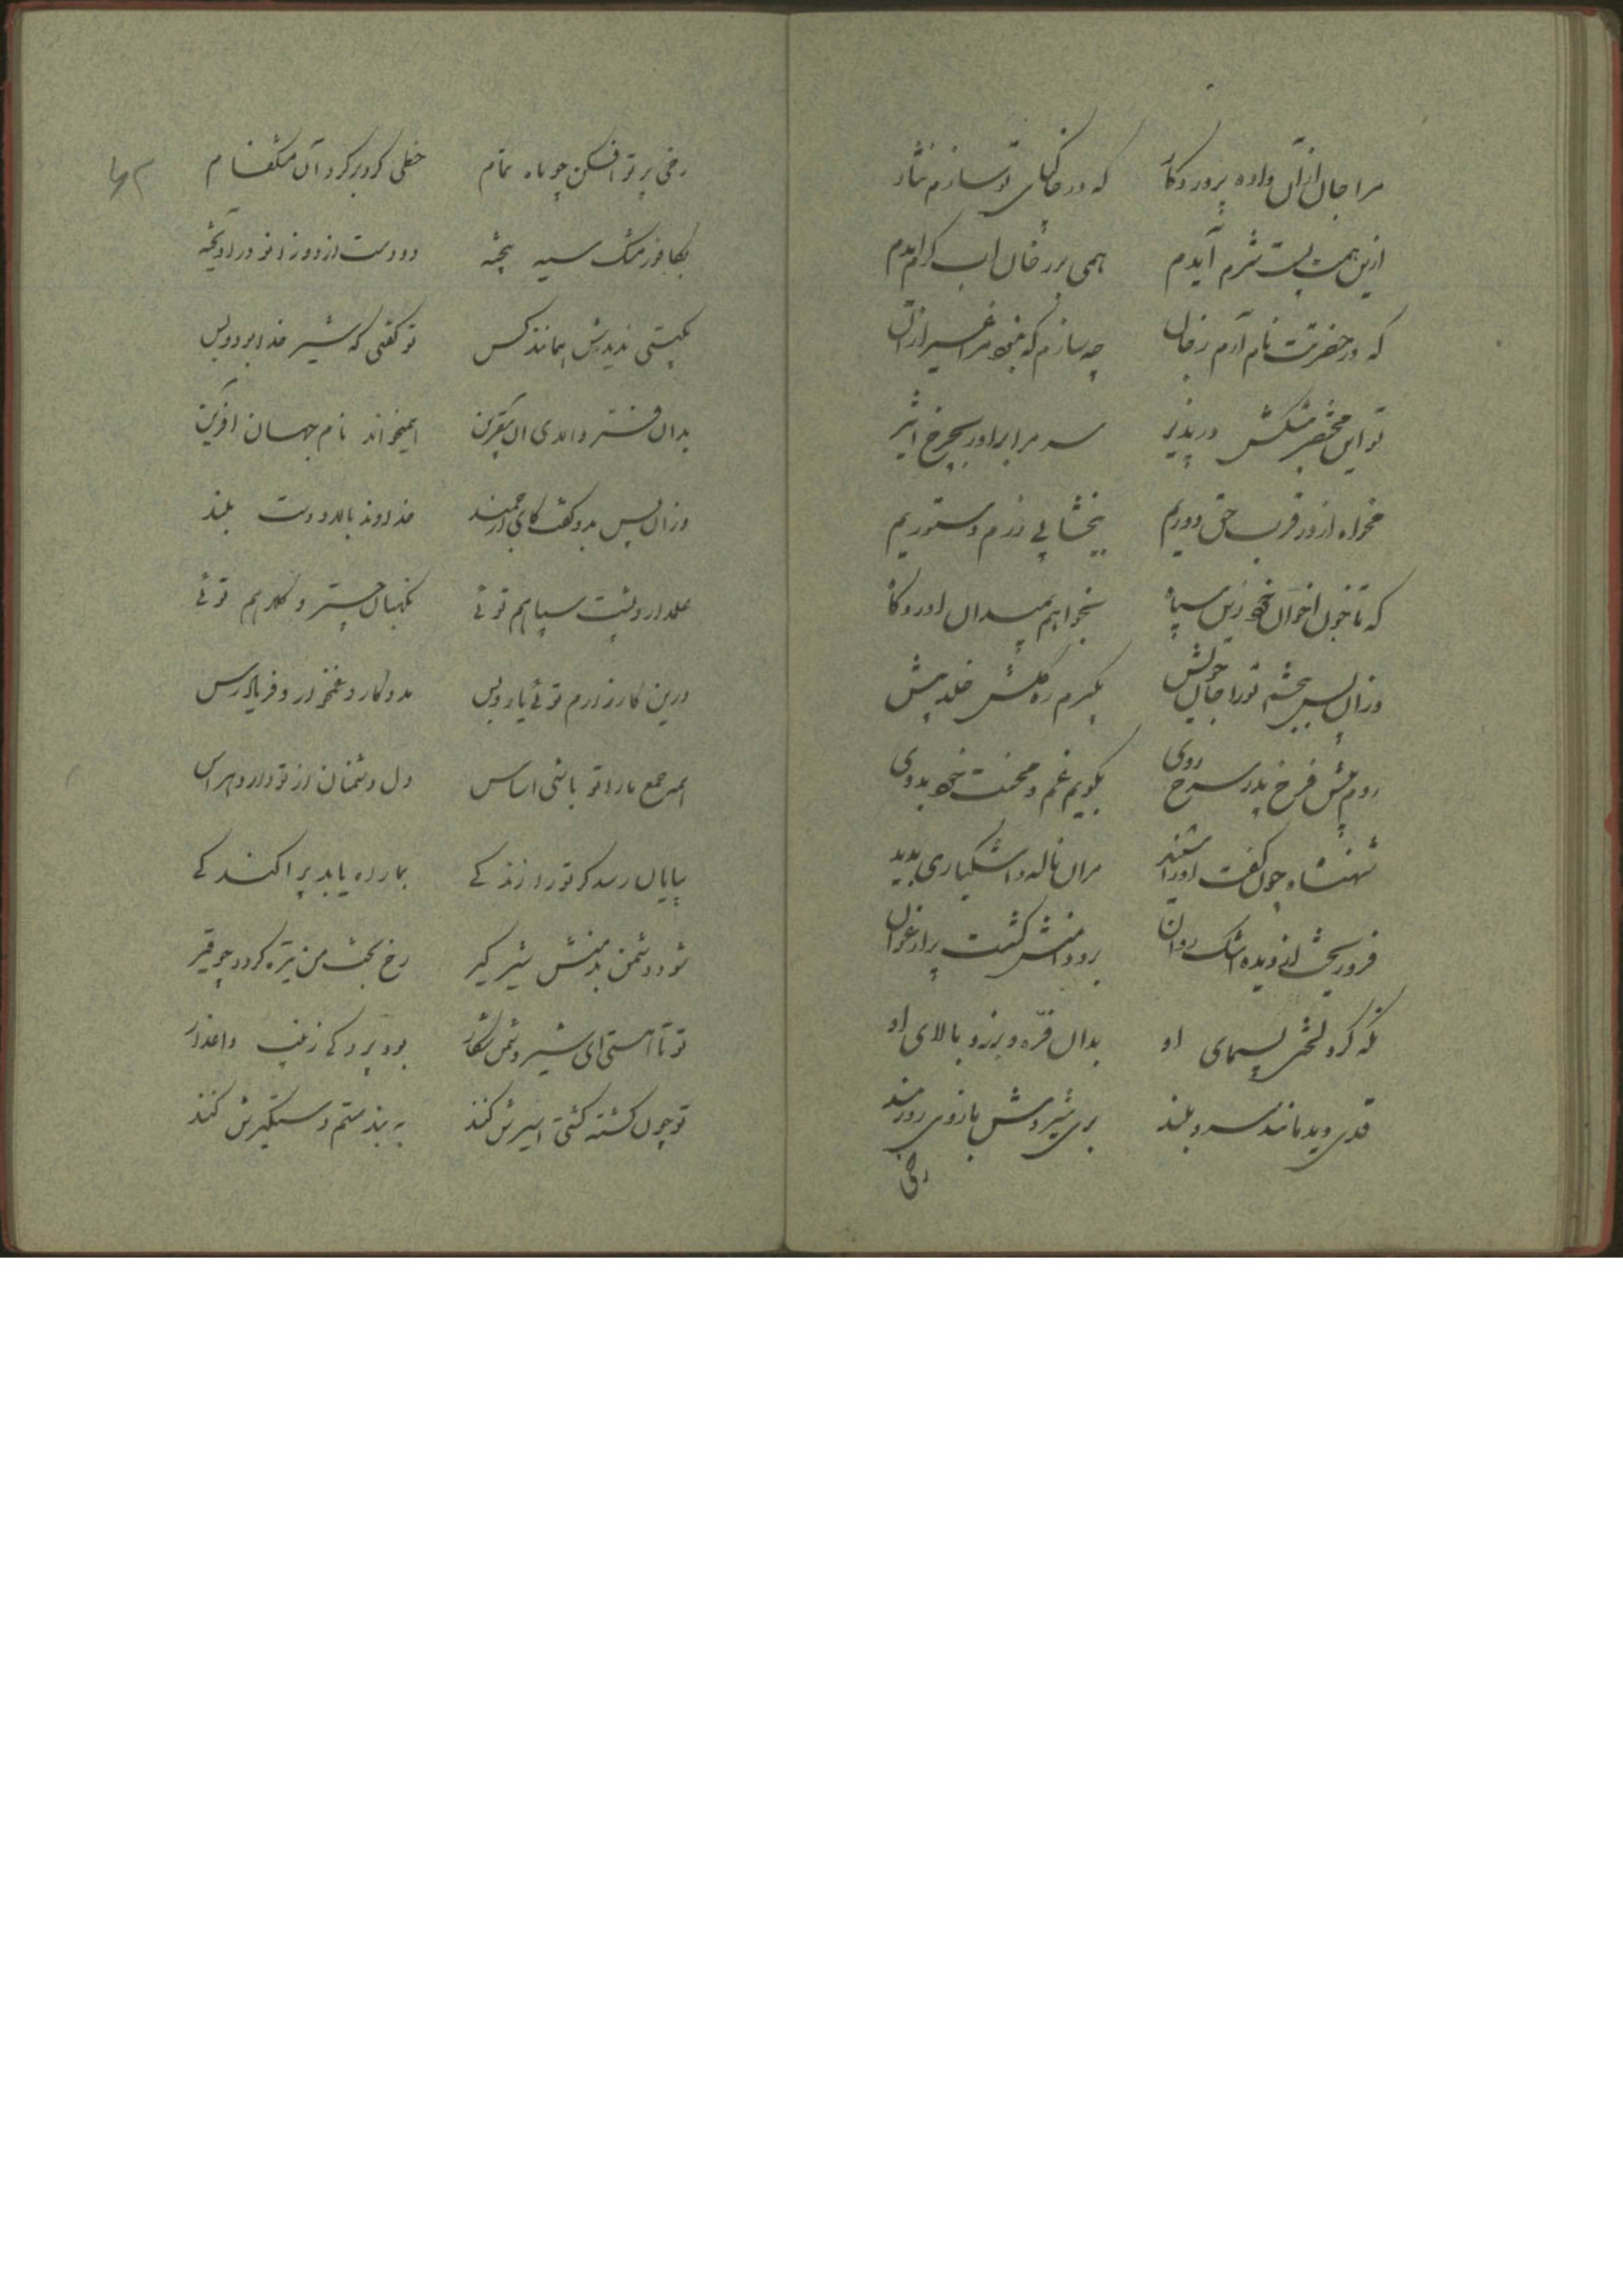 مرا جان از آن داده پروردگار که در خاکپای تو سازم نثار
ازین همت پست شرم آیدم همی بر رخان آب گرم آیدم
که در حضرتت نام آرم ز جان چه سازم که نبود مرا غیر از آن
تو این مختصر پیشکش در پذیر سر مرا برآور بچرخ اثیر
مخواه از در قرب حق دوریم ببخشای در رزم دستوریم
که تا خون اخوان خود زین سپاه بخواهم بمیدان آوردگاه
وزان پس ببخشم تو را جان خویش بگیرم ره گلشن خلد پیش
روم پیش فرخ پدر سرخ روی بگویم غم و محنت خود بدوی
شهنشاه چون گفت او را شنید مران ناله و اشکباری بدید
فرو ریخت از دیده اشک روان برو دامنش گشت پر ارغوان
نگه کرد لختی بسیمای او بدان فرّه و برز و بالای او
قدی دید مانند سرو بلند بری شیروش بازوی زورمند
رخی
رخی پرتو افکن چو ماه تمام خطی گرد بر گرد آن مشکفام
بکافور مشک سیه بیخته دو دست از دو زانو درآویخته
بگیتی ندیدش همانند کس تو گفتی که شیر خدا بود و بس
بدان فر و اندی آن همیخواند نام جهان آفرین
وزان پس بدو گفت کای ارجمند خداوند بالا و دست بلند
علمدار و پشت سپاهم توئی نگهبان چتر و کلاهم توئی
درین کارزارم توئی یار و بس مددکار و غمخوار و فریادرس
مر جمع ما را تو باشی اساس دل دشمنان از تو دارد هراس
بپایان رسد گر تو را زندگی بما راه یابد پراکندگی
شود دشمن بدمنش شیرگیر رخ بخت من تیره گردد چو قیر
تو تا هستی ای شیر دشمن شکار بود پردگی زینب داغدار
تو چون کشته گشتی اسیرش کنند به بند ستم دستگیرش کنند